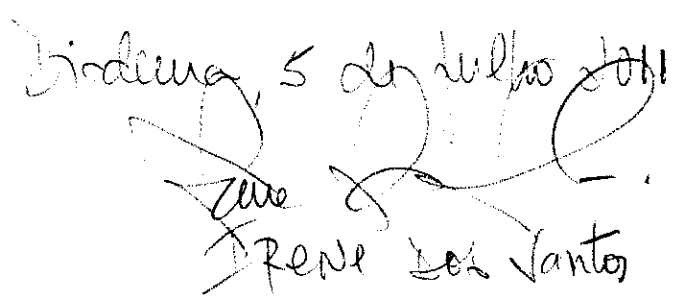 Diadema, 5 de Julho 2011
Irene
IRENE DOS Santos